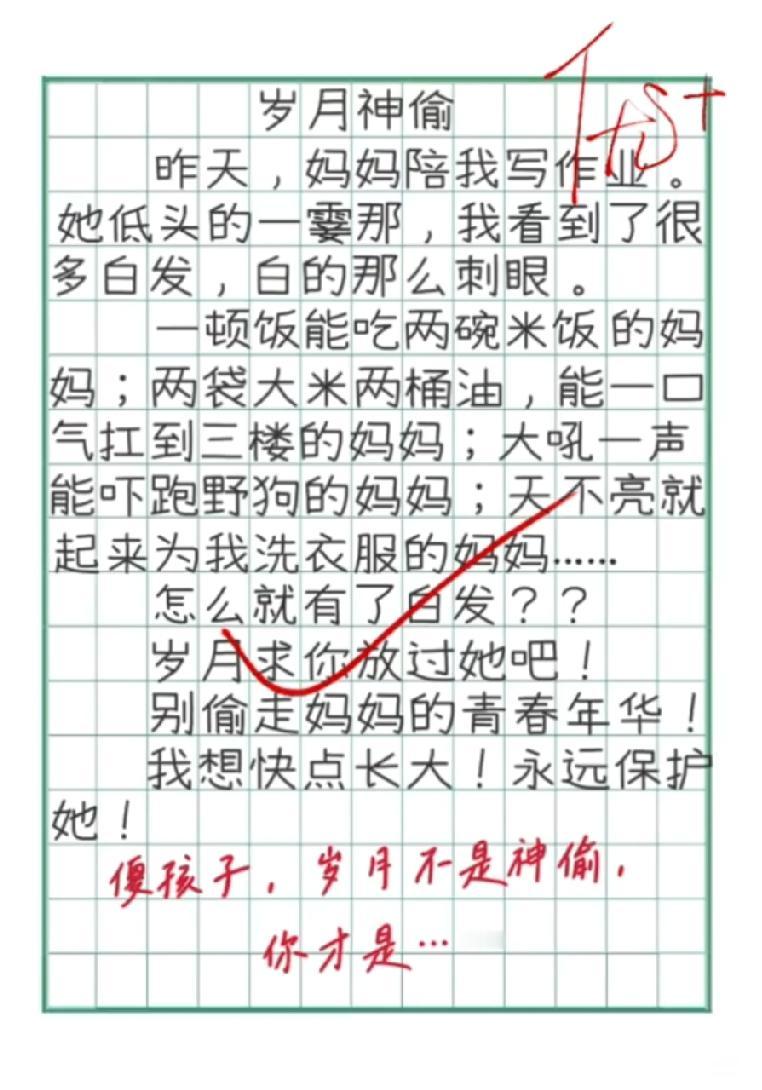 岁月神偷
昨天，妈妈陪我写作业。
她低头的一霎那，我看到了很
多白发，白的那么刺眼。
一顿饭能吃两碗米饭的妈
妈；两袋大米两桶油，能一口
气扛到三楼的妈妈；大吼一声
能吓跑野狗的妈妈；天不亮就
起来为我洗衣服的妈妈……
怎么就有了白发？？
岁月求你放过她吧！
别偷走妈妈的青春年华！
我想快点长大！永远保护
她！
傻孩子，岁月不是神偷，
你才是…